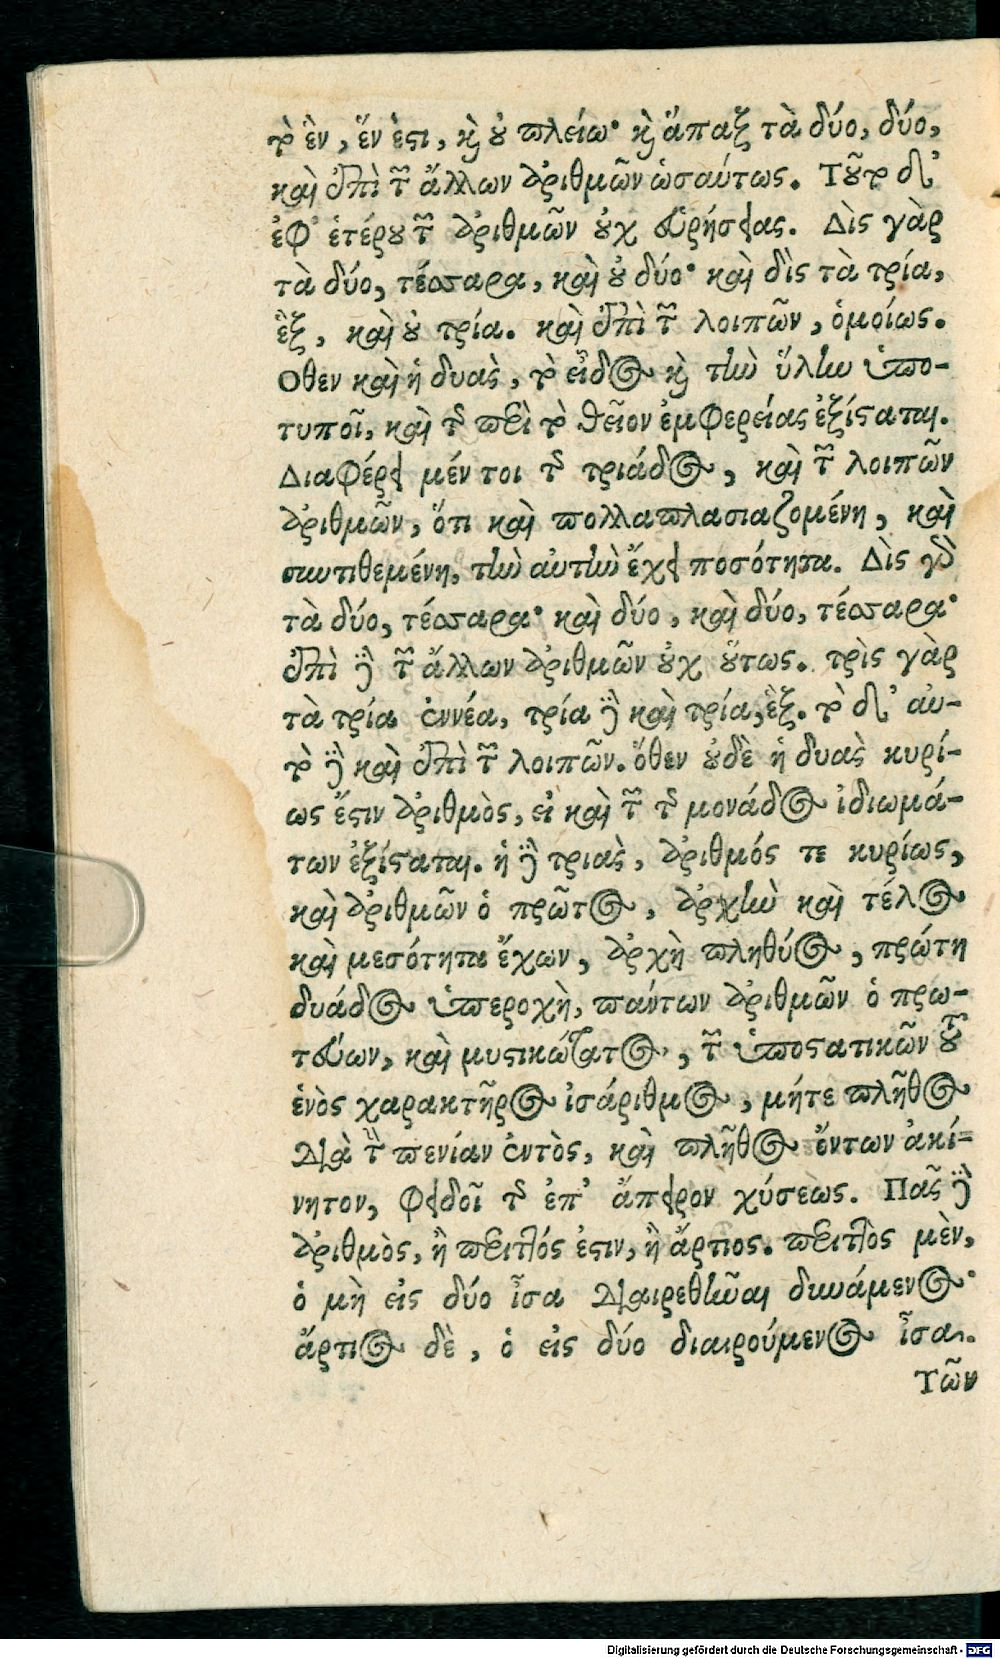 τὸ ἓν, ἕν ἐστι, καὶ οὐ πλείω· καὶ ἅπαξ τὰ δύο, δύο,
καὶ ἐπὶ τῶν ἄλλων ἀριθμῶν ὡσαύτως. Τοῦτο δ᾽
ἐφ᾽ ἑτέρου τῶν ἀριθμῶν οὐχ εὑρήσεις. Δὶς γὰρ
τὰ δύο, τέσσαρα, καὶ οὐ δύο· καὶ δὶς τὰ τρία,
ἓξ, καὶ οὐ τρία. καὶ ἐπὶ τῶν λοιπῶν, ὁμοίως.
Οθεν καὶ ἡ δυὰς, τὸ εἶδος καὶ τὴν ὕλην ὑπο-
τυποῖ, καὶ τῆς περὶ τὸ θεῖον ἐμφερείας ἐξίσταται.
Διαφέρει μέν τοι τῆς τριάδος, καὶ τῶν λοιπῶν
ἀριθμῶν, ὅτι καὶ πολλαπλασιαζομένη, καὶ
συντιθεμένη, τὴν αὐτὴν ἔχει ποσότητα. Δὶς γὰρ
τὰ δύο, τέσσαρα· καὶ δύο, καὶ δύο, τέσσαρα·
ἐπὶ δὲ τῶν ἄλλων ἀριθμῶν οὐχ οὕτως. τρὶς γὰρ
τὰ τρία ἐννέα, τρία δὲ καὶ τρία, ἓξ. τὸ δ᾽ αὐ-
τὸ δὲ καὶ ἐπὶ τῶν λοιπῶν. ὅθεν οὐδὲ ἡ δυὰς κυρί-
ως ἔστιν ἀριθμὸς, εἰ καὶ τῶν τῆς μονάδος ἰδιωμά-
των ἐξίσταται. ἡ δὲ τριὰς, ἀριθμός τε κυρίως,
καὶ ἀριθμῶν ὁ πρῶτος, ἀρχὴν καὶ τέλος
καὶ μεσότητα ἔχων, ἀρχὴ πλήθους, πρώτη
δυάδος ὑπεροχὴ, πάντων ἀριθμῶν ὁ πρω-
τεύων, καὶ μυστικώτατος, τῶν ὑποστατικῶν τοῦ
ἑνὸς χαρακτῆρος ἰσάριθμος, μήτε πλῆθος
διὰ τὴν πενίαν ἐντὸς, καὶ πλῆθος ὄντων ἀκί-
νητον, φειδοῖ τῆς ἐπ᾽ ἄπειρον χύσεως. Πᾶς δὲ
ἀριθμὸς, ἢ περιττός ἐστιν, ἢ ἄρτιος. περιττὸς μὲν,
ὁ μὴ εἰς δύο ἶσα διαιρεθῆναι δυνάμενος·
ἄρτιος δὲ, ὁ εἰς δύο διαιρούμενος ἶσα.
Τῶν
Digitalisierung gefördert durch die Deutsche Forschungsgemeinschaft - DFG